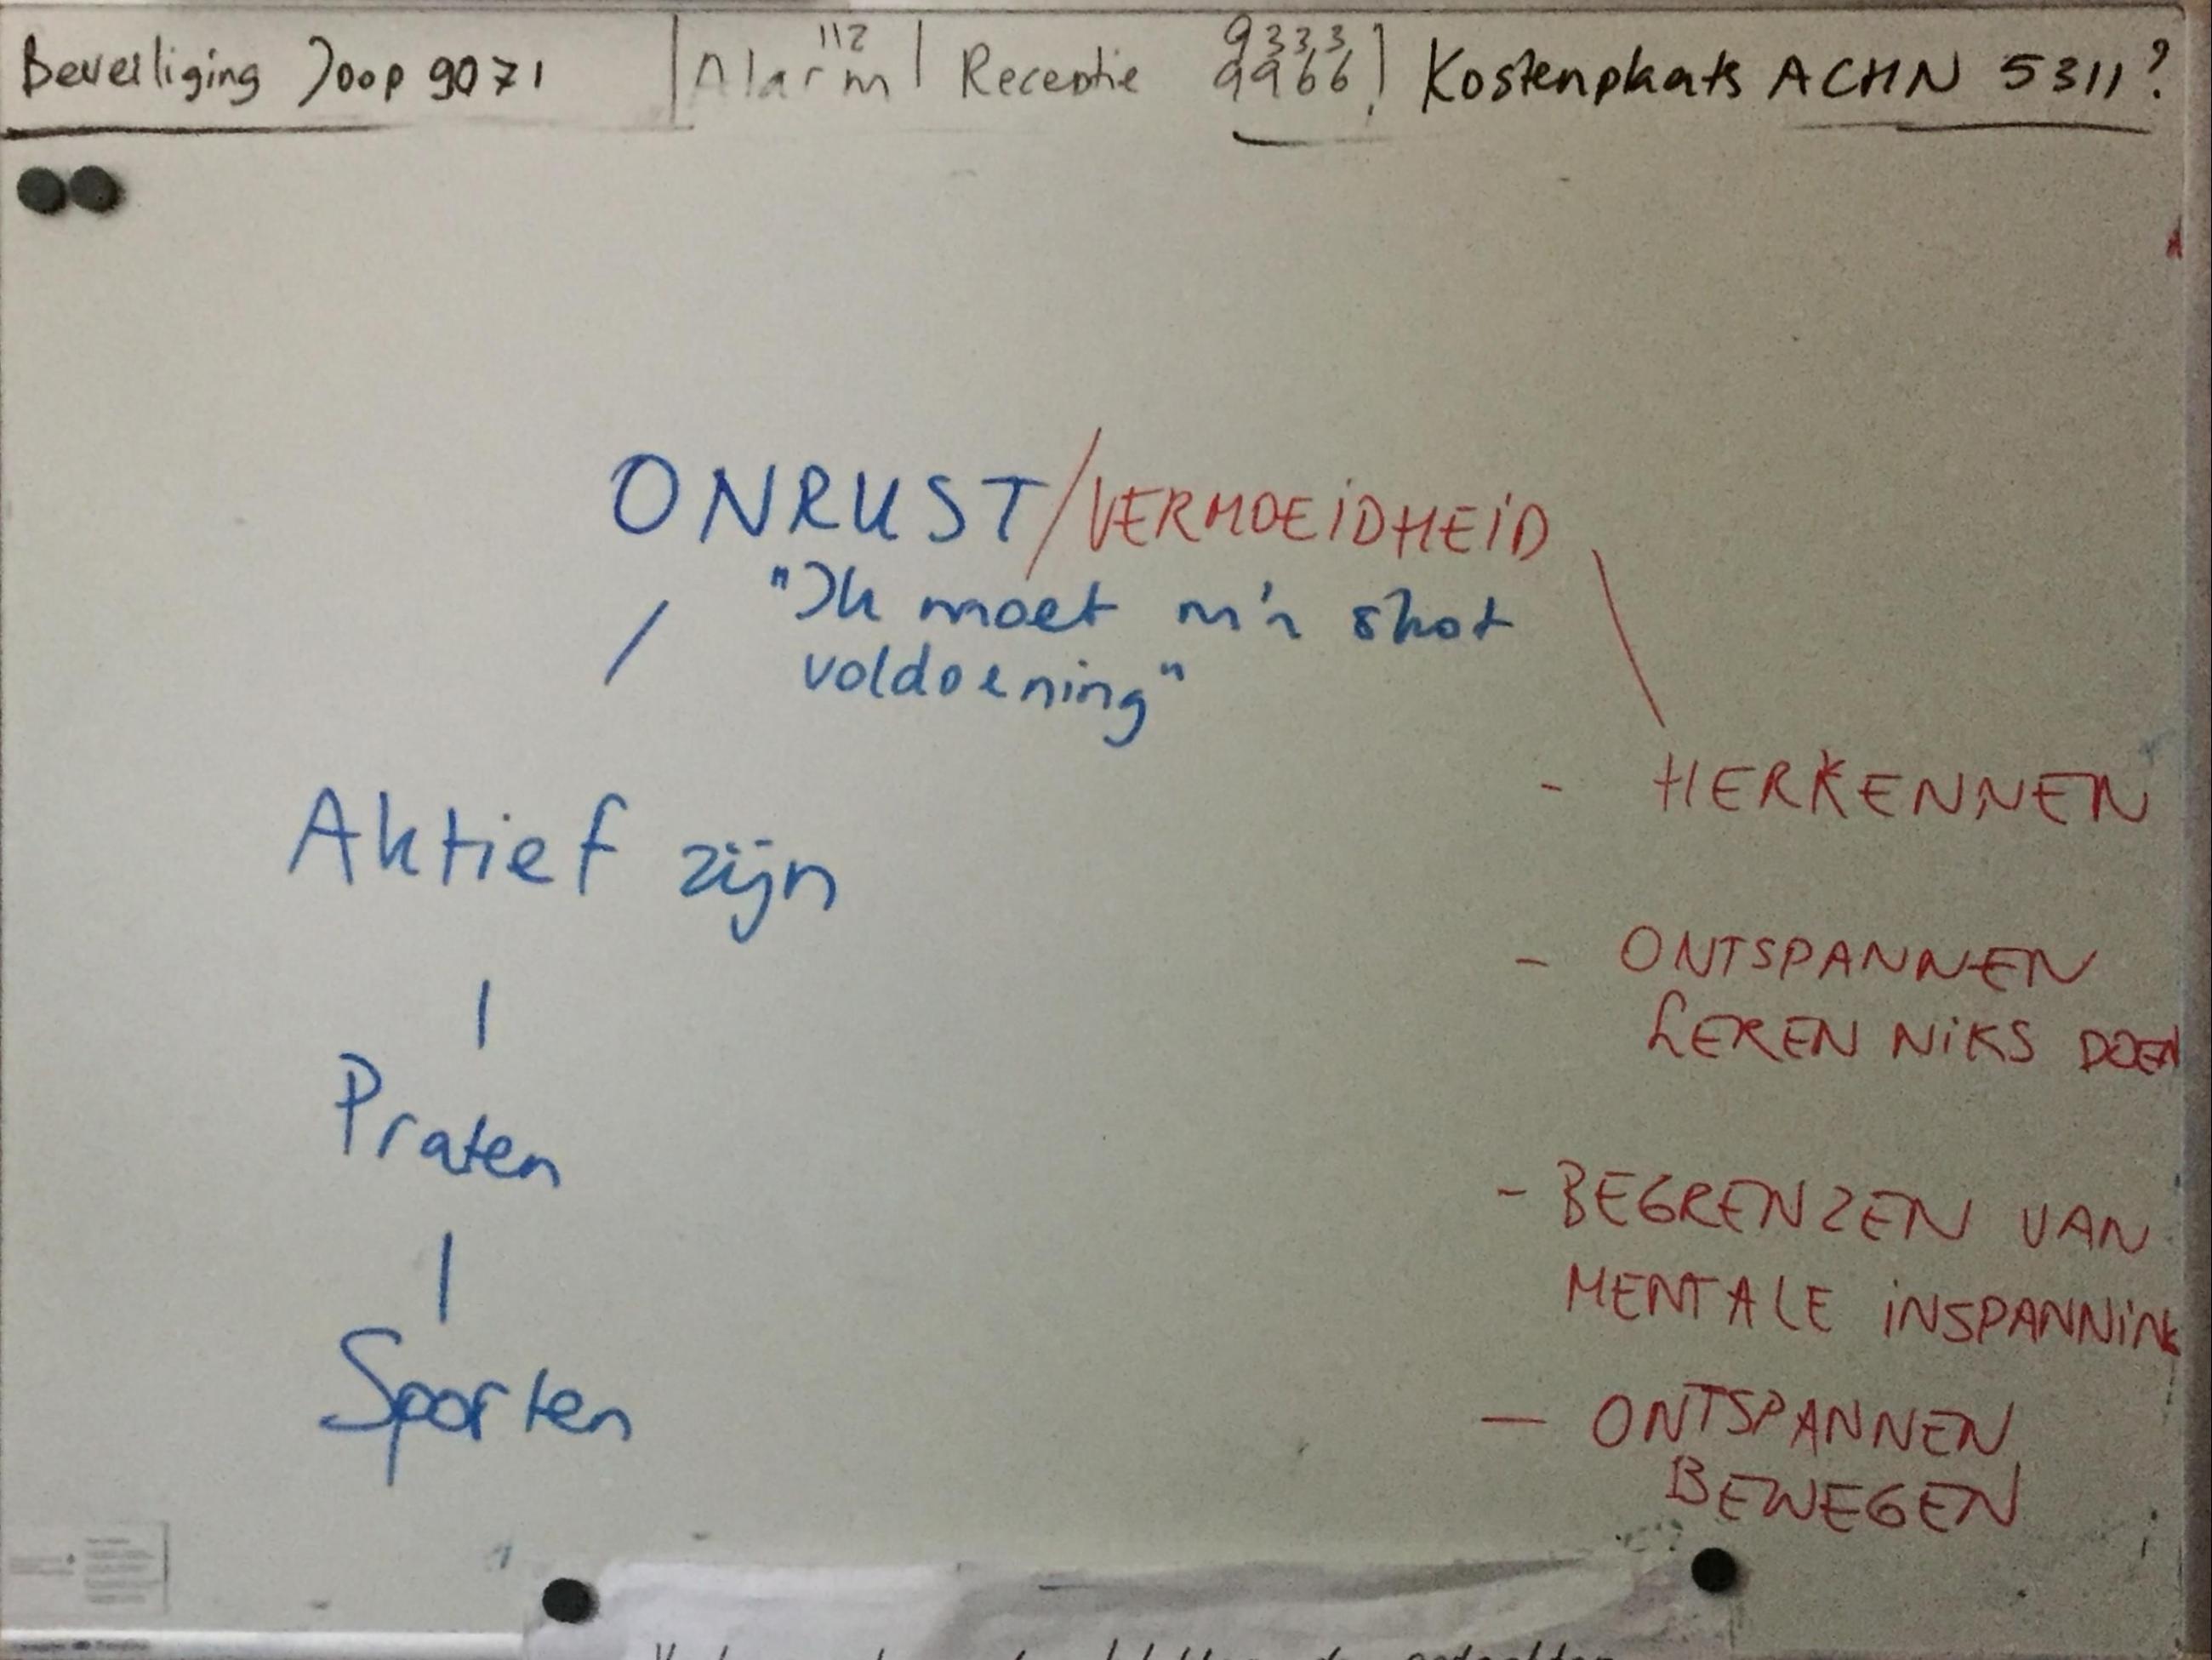 Beveiliging Joop 9071 | Alarm 112 | Receptie 9333 9966 | Kostenplaats ACHN 5311?
ONRUST/VERMOEIDHEID
"Ik moet m'n shot
voldoening"
Aktief zijn
Praten
Sporten
- HERKENNEN
- ONTSPANNEN
LEREN NIKS DOEN
- BEGRENZEN VAN
MENTALE INSPANNING
- ONTSPANNEN
BEWEGEN